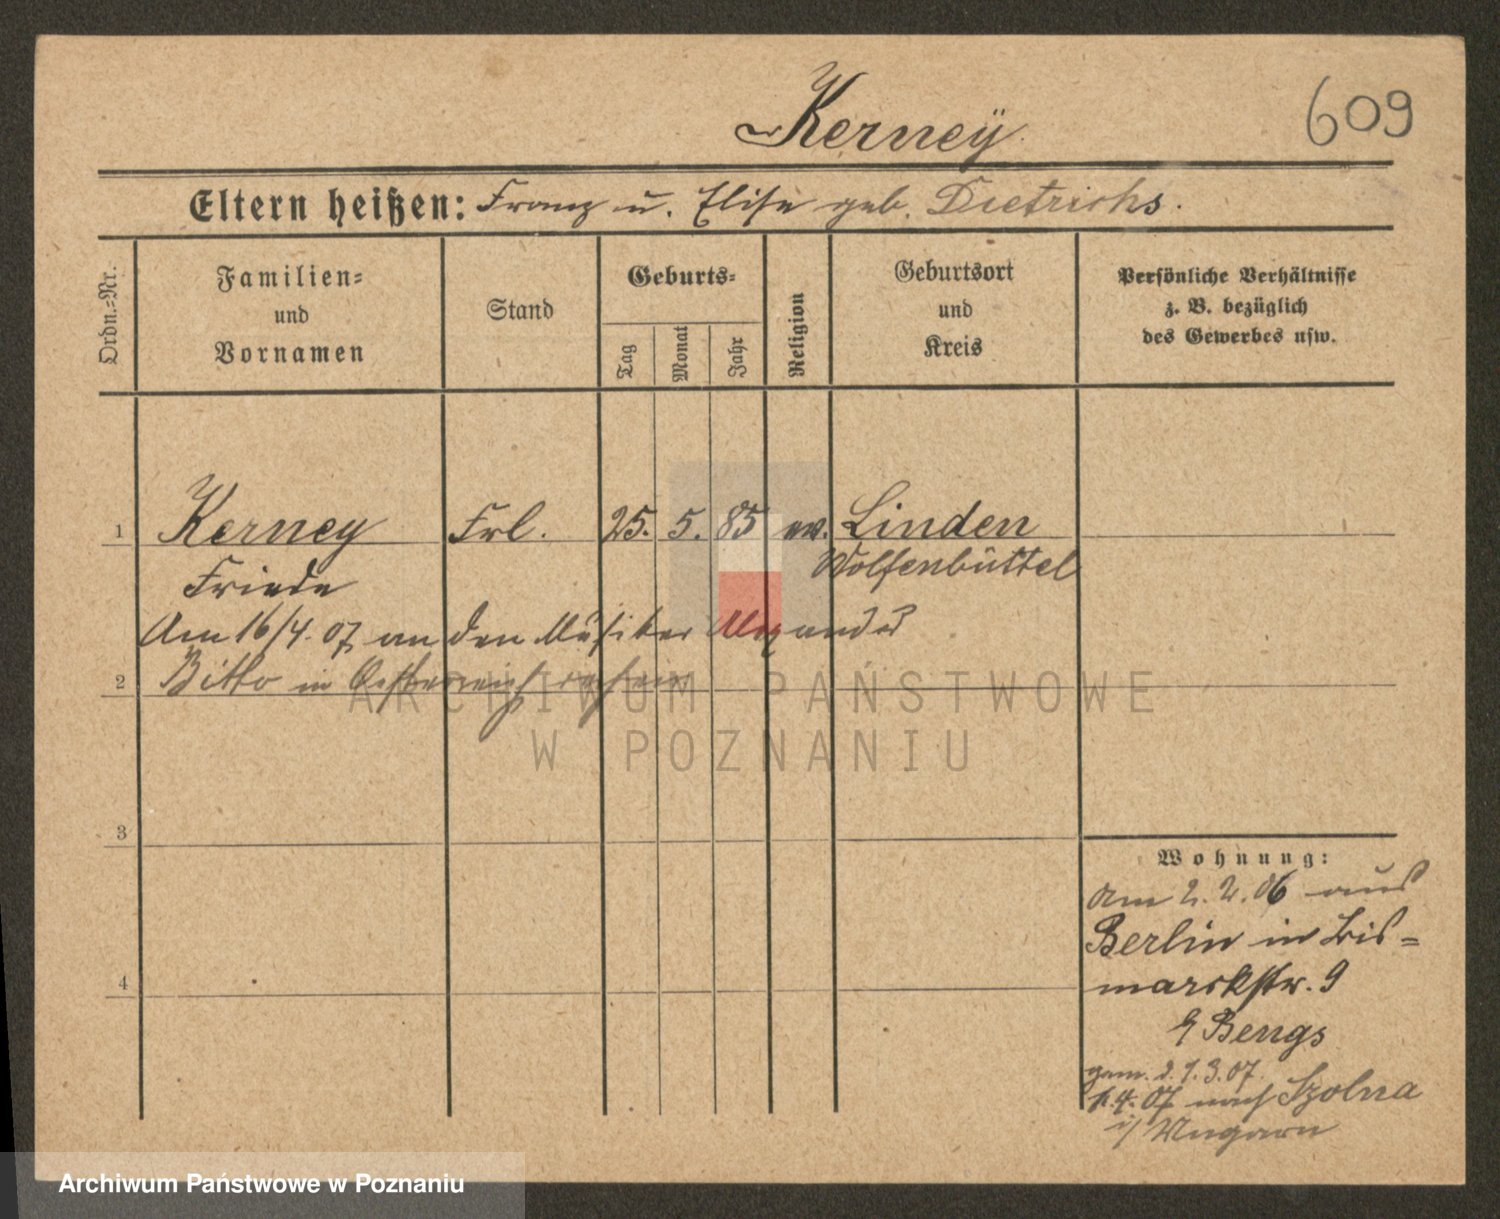 Kerney
609
Eltern heißen: Franz u. Elise geb. Dietrichs.
Ordn.-Nr.
Familien-
und
Vornamen
Stand
Geburts-
Tag
Monat
Jahr
Religion
Geburtsort
und
Kreis
Persönliche Verhältnisse
z. B. bezüglich
des Gewerbes usw.
1
Kerney Frl. 25. 5. 85 ev. Linden
Friede Wolfenbüttel
Am 16/4. 07 an den Musiker
2
Bitto in Oesterreich
3
4
Wohnung:
am 2. 2. 06 aus
Berlin in Bis-
marckstr. 9
Bengs
gem. 2. 1. 3. 07.
4. 07 nach Szolna
i/ Ungarn
ARCHIWUM PAŃSTWOWE
W POZNANIU
Archiwum Państwowe w Poznaniu